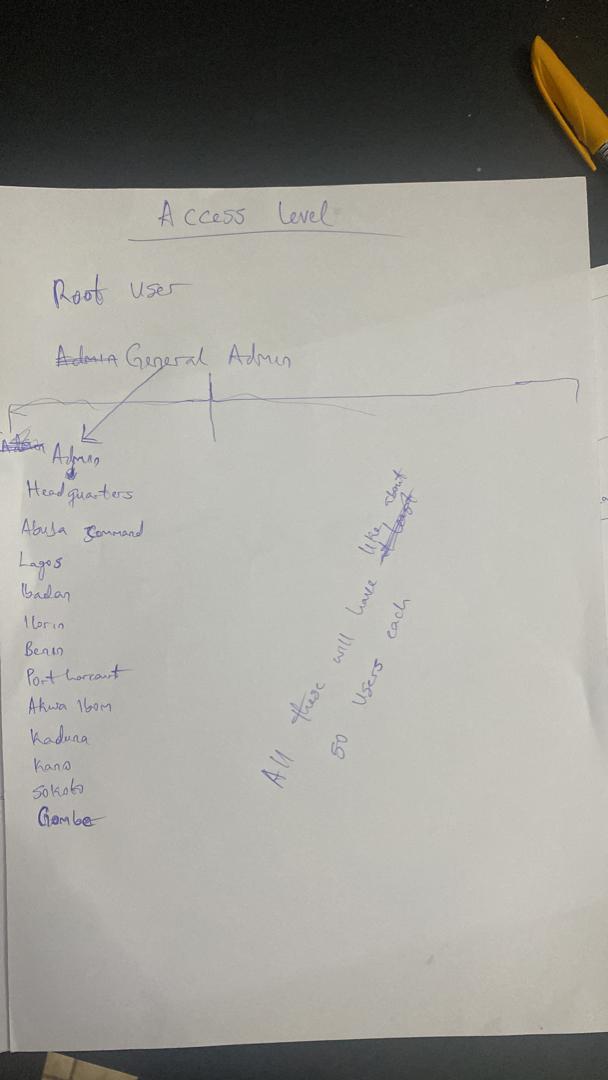 Access level
Root user
Admin General Admin
Admin
Headquarters
Abuja Command
Lagos
Ibadan
Ilorin
Benin
Port harcourt
Akwa Ibom
Kaduna
Kano
Sokoto
Gombe
All these will have like about
50 users each